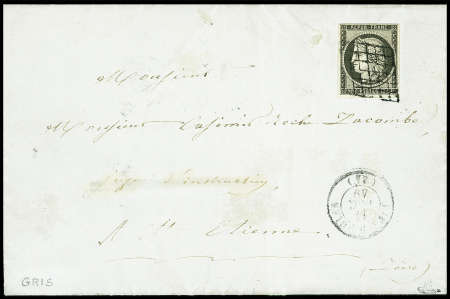 REPUB. FRANC.
Monsieur
Monsieur Casimir Roch Lacombe,
Juge d'instruction
A St Etienne
(Loire)
GRIS